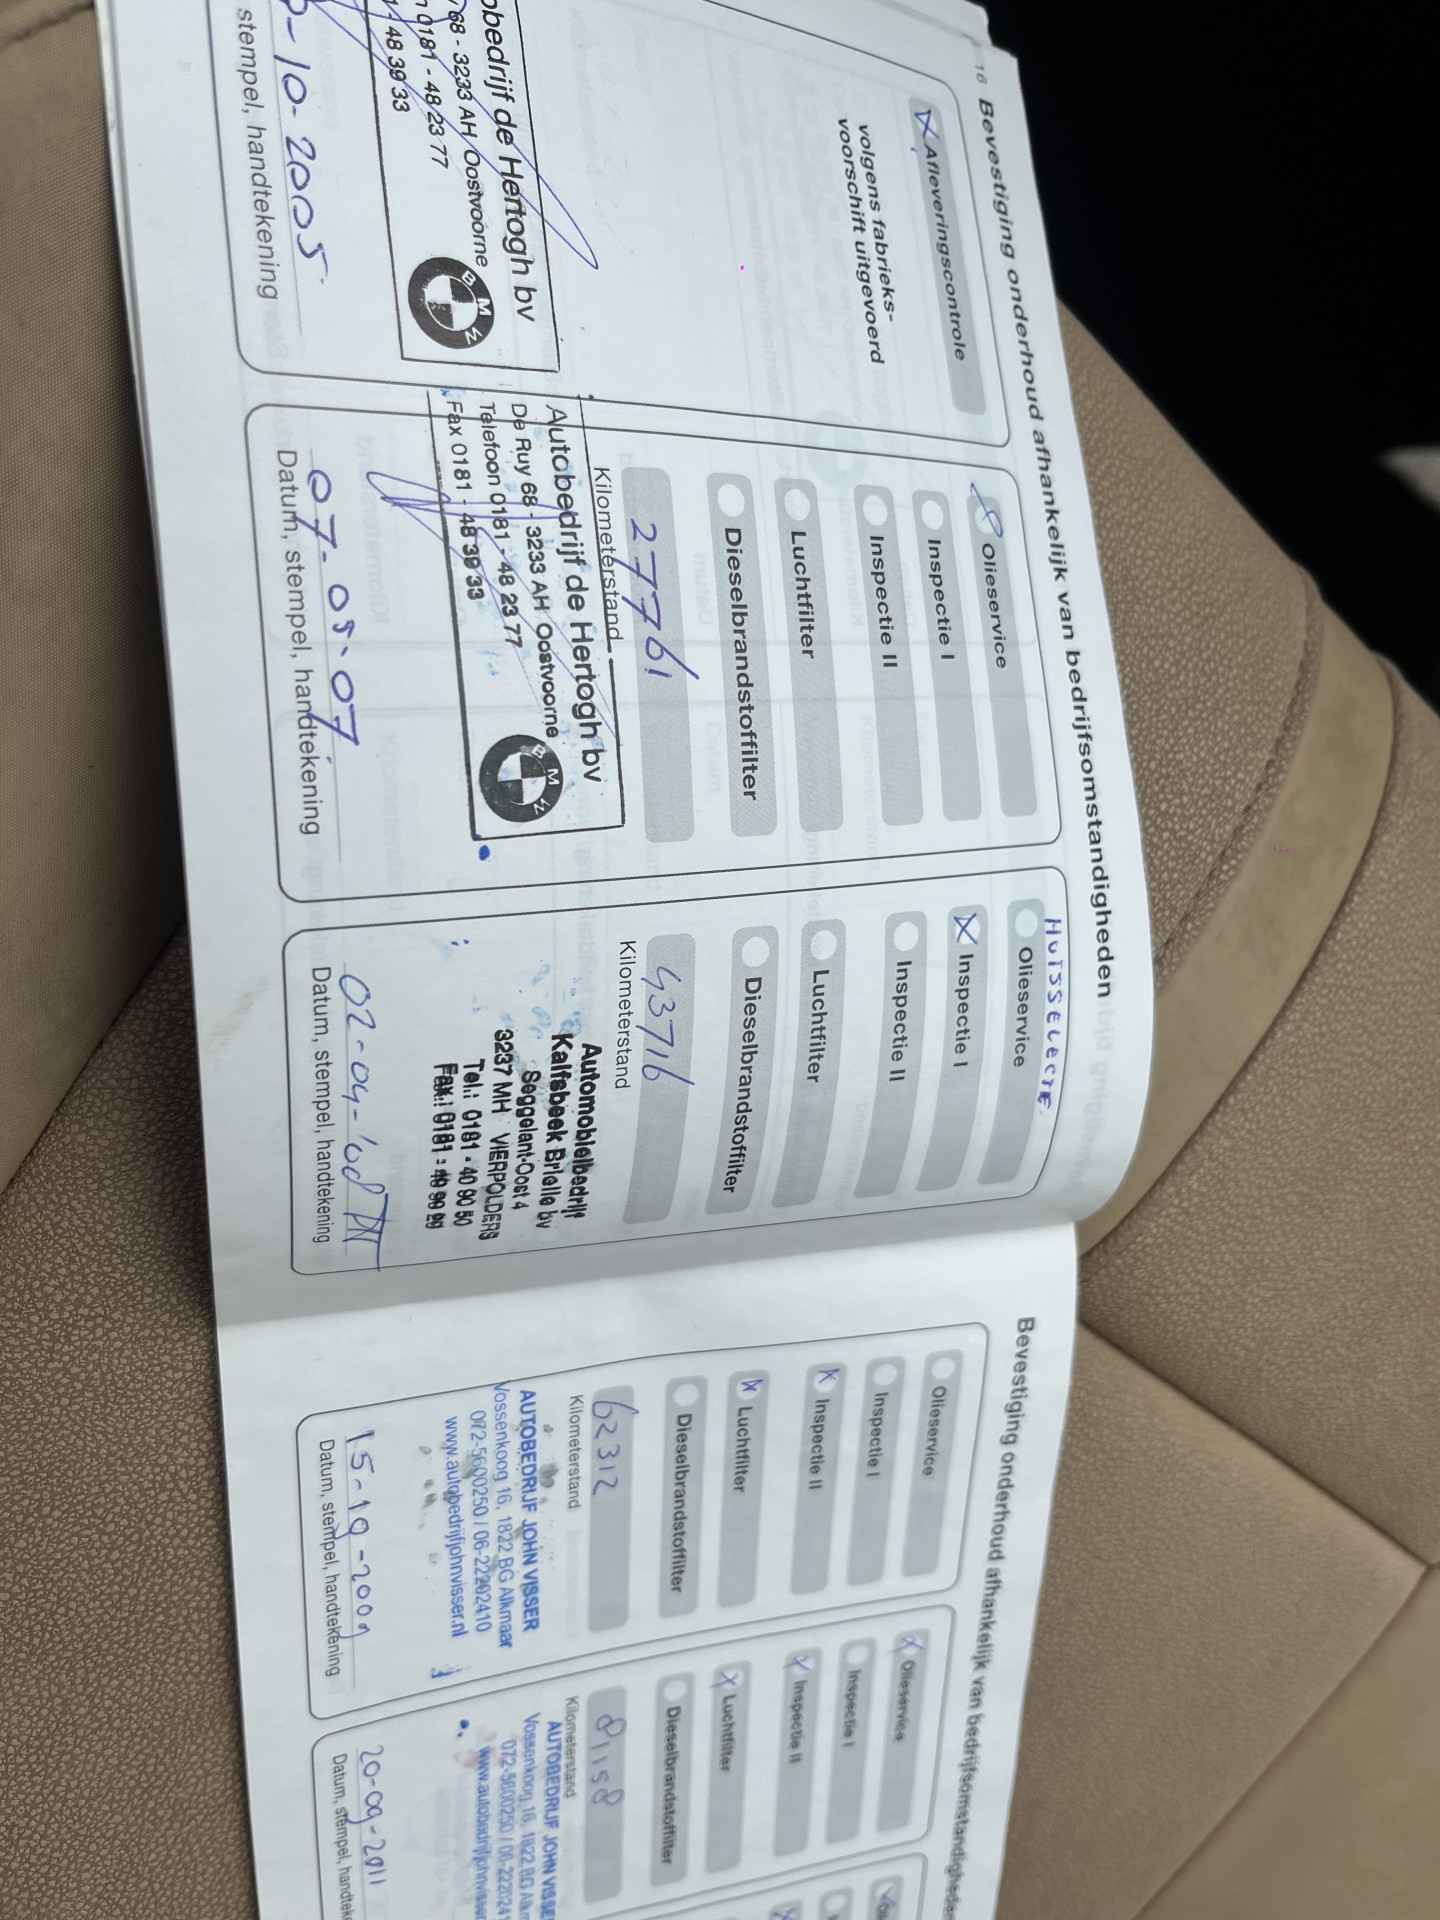 16 Bevestiging onderhoud afhankelijk van bedrijfsomstandigheden
Afleveringscontrole
volgens fabrieks-
voorschrift uitgevoerd
obedrijf de Hertogh bv
68 - 3233 AH Oostvoorne
0181 - 48 23 77
48 39 33
BMW
-10-2005
stempel, handtekening
Olieservice
Inspectie I
Inspectie II
Luchtfilter
Dieselbrandstoffilter
27761
Kilometerstand
Autobedrijf de Hertogh bv
De Ruy 68 - 3233 AH Oostvoorne
Telefoon 0181 - 48 23 77
Fax 0181 - 48 39 33
BMW
07-05-07
Datum, stempel, handtekening
Olieservice
Inspectie I
Inspectie II
Luchtfilter
Dieselbrandstoffilter
43716
Kilometerstand
Automobielbedrijf
Kalfsbeek Brielle bv
Seggelant-Oost 4
3237 MH VIERPOLDERS
Tel.: 0181 - 40 90 50
Fax.: 0181 - 40 99 99
02-04-
Datum, stempel, handtekening
Bevestiging onderhoud afhankelijk van bedrijfsomstandigheden
Olieservice
Inspectie I
Inspectie II
Luchtfilter
Dieselbrandstoffilter
62312
Kilometerstand
AUTOBEDRIJF JOHN VISSER
Vossenkoog 16, 1822 BG Alkmaar
072-5600250 / 06-22202410
www.autobedrijfjohnvisser.nl
15-10-2009
Datum, stempel, handtekening
Olieservice
Inspectie I
Inspectie II
Luchtfilter
Dieselbrandstoffilter
81158
Kilometerstand
AUTOBEDRIJF JOHN VISSE
Vossenkoog 16, 1822 BG Alkm
072-5600250 / 06-2220241
www.autobedrijfjohnvisser
20-09-2011
Datum, stempel, handteke